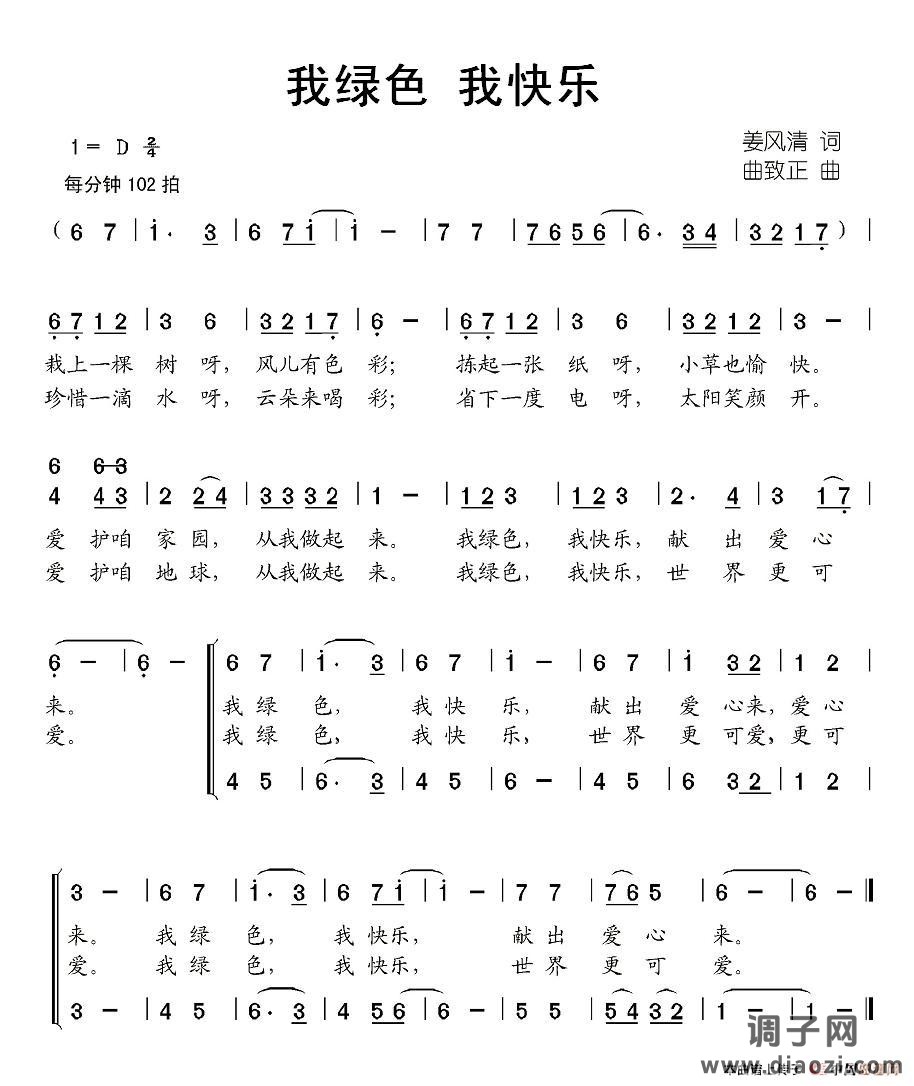 我绿色 我快乐
1= D 2/4
姜风清 词
每分钟 102 拍
曲致正 曲
( 6 7 | i· 3 | 6 7i | i - | 7 7 | 7656 | 6· 34 | 3217 ) |
67 12 | 3 6 | 3217 | 6 - | 67 12 | 3 6 | 3212 | 3 - |
栽上一棵 树 呀, 风儿有色 彩; 拣起一张 纸 呀, 小草也愉 快。
珍惜一滴 水 呀, 云朵来喝 彩; 省下一度 电 呀, 太阳笑颜 开。
6 6 3
4 43 | 2 24 | 3332 | 1 - | 12 3 | 12 3 | 2· 4 | 3 17 |
爱 护咱 家 园, 从我做起 来。 我绿色, 我快乐, 献 出 爱 心
爱 护咱 地 球, 从我做起 来。 我绿色, 我快乐, 世 界 更 可
6 - | 6 - 6 7 | i· 3 | 6 7 | i - | 6 7 | i 32 | 1 2 |
来。 我 绿 色, 我 快 乐, 献 出 爱 心来, 爱 心
爱。 我 绿 色, 我 快 乐, 世 界 更 可爱, 更 可
4 5 | 6· 3 | 4 5 | 6 - | 4 5 | 6 32 | 1 2 |
3 - | 6 7 | i· 3 | 6 7i | i - | 7 7 | 765 | 6 - | 6 - ‖
来。 我 绿 色, 我 快乐, 献 出 爱 心 来。
爱。 我 绿 色, 我 快乐, 世 界 更 可 爱。
3 - | 4 5 | 6· 3 | 4 56 | 6 - | 5 5 | 5432 | 1 - | 1 - ‖
调子网
www.diaozi.com